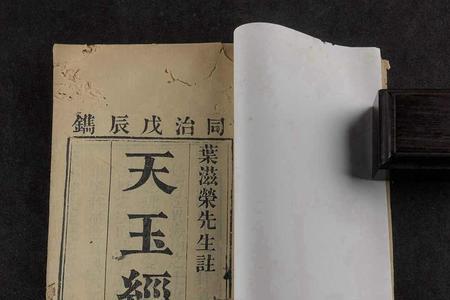 同治戊辰鐫
葉滋榮先生註
天玉經